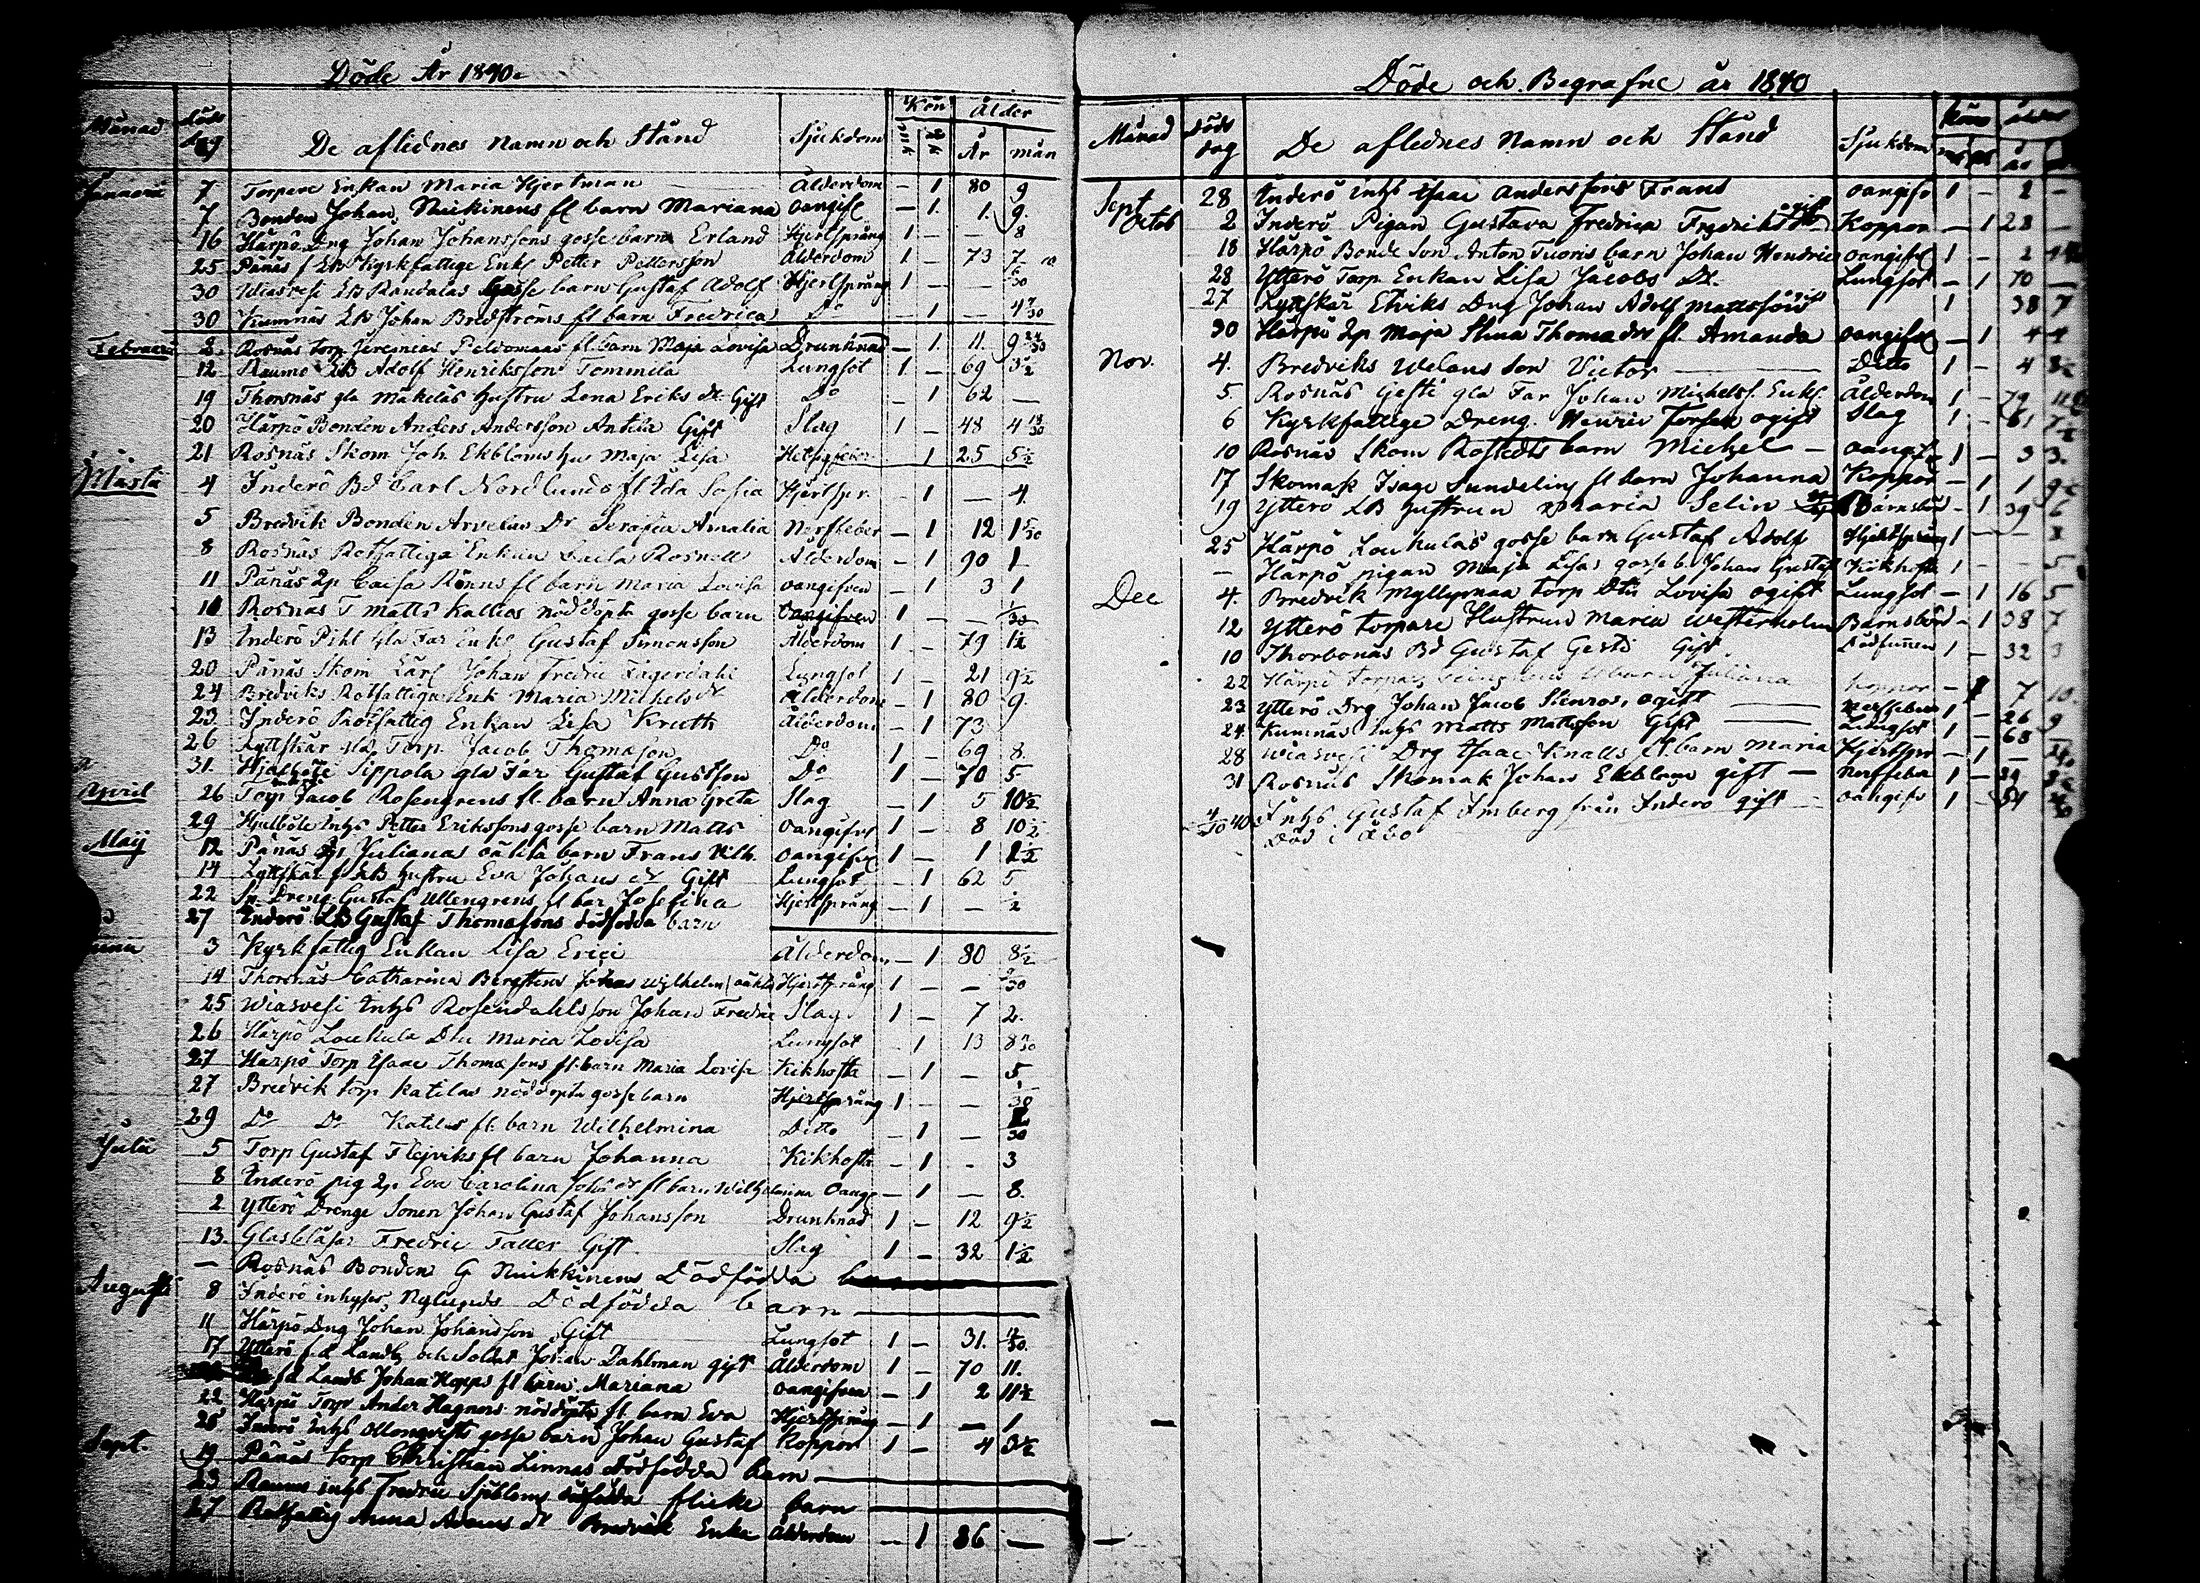 Döde År 1840.
Månad döds dag De aflidnes Namn och Stånd Sjukdom Kön mk qk Ålder År mån
Januari 7 Torpare Enkan Maria Hjertman Ålderdom – 1 80 9
7 Bonden Johan Nickinens fl barn Mariana oangifl – 1. 1. 9.
16 Härpö Dng Johan Johanssons gosse barn Erland Hjertsprång 1 – – 8
25 Pänäs f LB Kyrkfattige Enkl Petter Pettersson Ålderdom 1 – 73 7
30 Wiasvesi LB Randalas gosse barn Gustaf Adolf Hjertsprång 1 – – 6/30
30 Kumnäs LB Johan Bredströms fl barn Fredrica Do – 1 – 4 7/30
Februari 8. Rosnäs torp Jeremias Peldomaas fl barn Maja Lovisa Drunknad – 1. 11. 9 24/30
12 Raumo LB Adolf Henriksson Tommila Lungsot 1 – 69 3½
19 Thorsnäs gla Mäkeläs hustru Lena Eriks dr Gift Do – 1 62 —
20 Härpö Bonden Anders Andersson Antila Gift Slag 1 – 48 4 18/30
21 Rosnäs Skom Joh Ekbloms hus Maja Lisa Hetsigfeber – 1 25 5½
Martii 4 Inderö Bd Carl Nordlunds fl Ida Sofia Hjertspr. – 1 — 4
5 Bredvik Bonden Arvelas Dr Serafia Amalia Nerffeber – 1 12 1 5/30
8 Rosnäs Rotfattiga Enkan Caisa Rosnell Ålderdom – 1 90 1
11 Pänäs Qp Caisa Rönns fl barn Maria Lovisa oangifven – 1 3 1
10 Rosnäs T Matts Kallios nöddöpta gosse barn Oangifven 1 – – 1/30
13 Inderö Pihl gla Far Enkl Gustaf Simonsson Ålderdom 1 – 79 1½
20 Pänäs Skom Lärl Johan Fredric Fagerdahl Lungsot 1 – 21 9½
24 Bredviks Rotfattiga Enk Maria Michels dr Ålderdom – 1 80 9.
23 Inderö Rotfattig Enkan Lisa Kruth Ålderdom – 1 73
26 Lyttskär gla Torp. Jacob Thomasson Do 1 – 69 8.
31. Hjulböle Sippola gla Far Gustaf Gustfson Do 1 – 70 5
April 26 Torp Jacob Rosengrens fl. barn Anna Greta Slag – 1 5 10½
29 Hjulböle Inhs Petter Erikssons gosse barn Matts oangifvl 1 – 8 10½
Maij 12 Pänäs Qp Julianas oäkta barn Frans Vilh. oangifvl 1 – 1 1½
14 Lyttskär f LB hustru Eva Johans dr Gift Lungsot – 1 62 5
22 Dreng Gustaf Ullengrens fl bar Josefina Hjertsprång – 1 – ½
27 Inderö LB Gustaf Thomasons dödfödda barn
3 Kyrkfattig Enkan Lisa Erici Ålderdom – 1 80 8½
14 Thorsnäs Catharina Bergstens Johan Wilhelm (oäkta Hjertsprång 1 – – 9/30
25 Wiasvesi Inhs Rosendahls son Johan Fredric Slag 1 – 7 2.
26 Härpö Loukula Dtr Maria Lovisa Lungsot – 1 13 8
27 Härpö Torp Isaac Thomasons fl. barn Maria Lovisa Kikhosta – 1 – 5
27 Bredvik torp Katilas nöddöpta gosse barn Hjertsprång 1 – – 1/30
29 Do Do Katilas fl. barn Wilhelmina Ditto – 1 – /30
Julii 5 Torp Gustaf Flejviks fl barn Johanna Kikhosta – 1 – 3
8 Inderö pig Qp Eva Carolina Johs dr fl barn Wilhelmina Oang – 1 – 8.
2 Ytterö Drenge Sonen Johan Gustaf Johansson Drunknad 1 – 12 9½
13. Glasblåsar Fredric Taller Gift Slag 1 – 32 1½
– Rosnäs Bonden G Nickkinens Dödfödda
Augusti 8 Inderö inhyses Nylunds Dödfödda barn
11 Härpö Dng Johan Johansson Gift Lungsot 1 – 31. /30
17 Ytterö f.d. Landb. och Soldat Johan Dahlman gift Ålderdom 1 – 70 11.
fd Landb Johan Kopps fl barn Mariana oangifven – 1 2 11½
22 Härpö Torp Ander Hagners nöddöpta fl. barn Eva Hjertsprång – 1 – 1
28 Inderö Inhs Ollonqvists gosse barn Johan Gustaf Koppor 1 – 4 3½
Sept. 19 Pänäs torp Christian Linnas dödfödda barn
23 Raumo inhs Fredric Sjöbloms dödfödda flicke barn
27 Rotfattig Anna Adams dr Bredvik Enka Ålderdom – 1 86 —
Döde och Begrafne år 1840
Månad döds dag De aflednes Namn och Stånd Sjukdom Kön ålder år
Sept 28 Inderö inhs Isaac Anderssons Frans oangifv 1 – 2 –
Octob 2 Inderö Pigan Gustava Fredrica Fredriks dr ogift Koppor – 1 28 –
18 Härpö Bonde Son Anton Tuoris barn Johan Hendric oangifvl 1 – 2
28 Ytterö Torp Enkan Lisa Jacobs Dr. Lungsot – 1 70 —
27 Lyttskär Elviks Dng Johan Adolf Mattsson ogift 1 38 7
30 Härpö Qp Maja Stina Thomas dr fl. Amanda oangifvl – 1 4 4
Nov. 4. Bredviks Welans son Victor Ditto 1 – 4
5. Rosnäs Gesti gla Far Johan Michelss. Enkl. Ålderdom 1 – 79
6 Kyrkfattige Dreng. Henric Forsen ogift Slag 1 – 61 7½
10 Rosnäs Skom Rostedts barn Michel – oangifv 1 – 3 3.
17 Skomak Isage Sundelins fl barn Johanna Koppor – 1 1 9
19 Ytterö LB hustrun Maria Selin Barnsbörd – 1 39 6
25 Härpö Loukulas gosse barn Gustaf Adolf Hjertsprång 1 – –
– Härpö pigan Maja Lisas gosse b. Johan Gustaf Kikhosta 1 – – 5
Dec 4. Bredvik Myllymaa torp Dtr Lovisa ogift Lungsot – 1 16 5
12 Ytterö torpare Hustrun Maria Westerholm Barnsbörd – 1 38 7
10 Thorbonäs Bd Gustaf Gesti Gift. Dödfunnen 1 – 32 3
22 Härpö torpar barn Juliana Koppor – 1 7 10.
23 Ytterö Drg Johan Jacob Stenros, ogift Nerffeber 1 – 26 9
24. Kumnäs Inhs Matts Mattsson Gift Lungsot 1 – 68
28 Wiasvesi Drg Isaac Knalls fl. barn Maria Hjertspr – 1 –
31 Rosnäs Skomak Johan Ekblom gift — Nerffeber 1 –
4/10 40. Inhs. Gustaf Imberg från Inderö gift oangifv 1 – 54
Död i Åbo